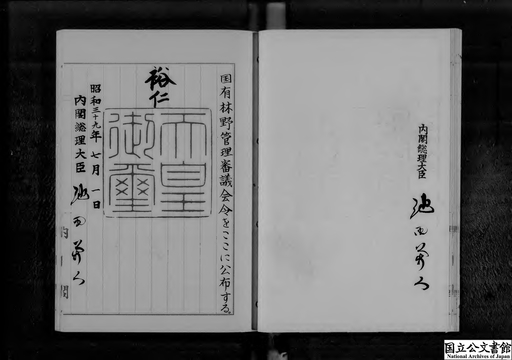 国有林野管理審議会令をここに公布する。
裕仁
天皇御璽
昭和三十九年七月一日
内閣総理大臣 池田勇人
内閣
内閣総理大臣
池田勇人
国立公文書館
National Archives of Japan